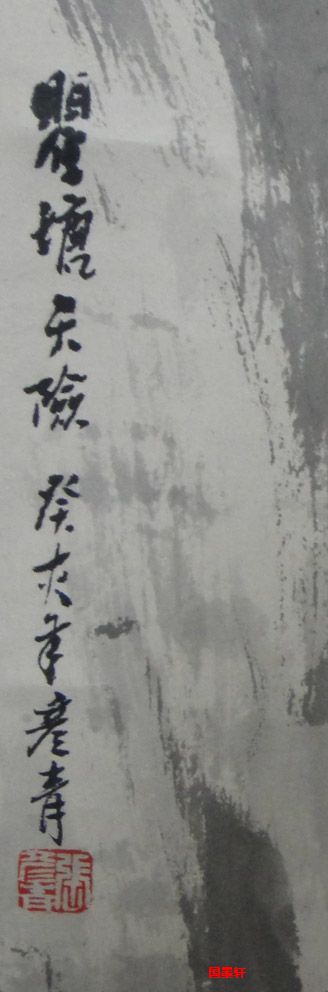 瞿塘天險 癸亥年彦青
張彦青
国墨轩